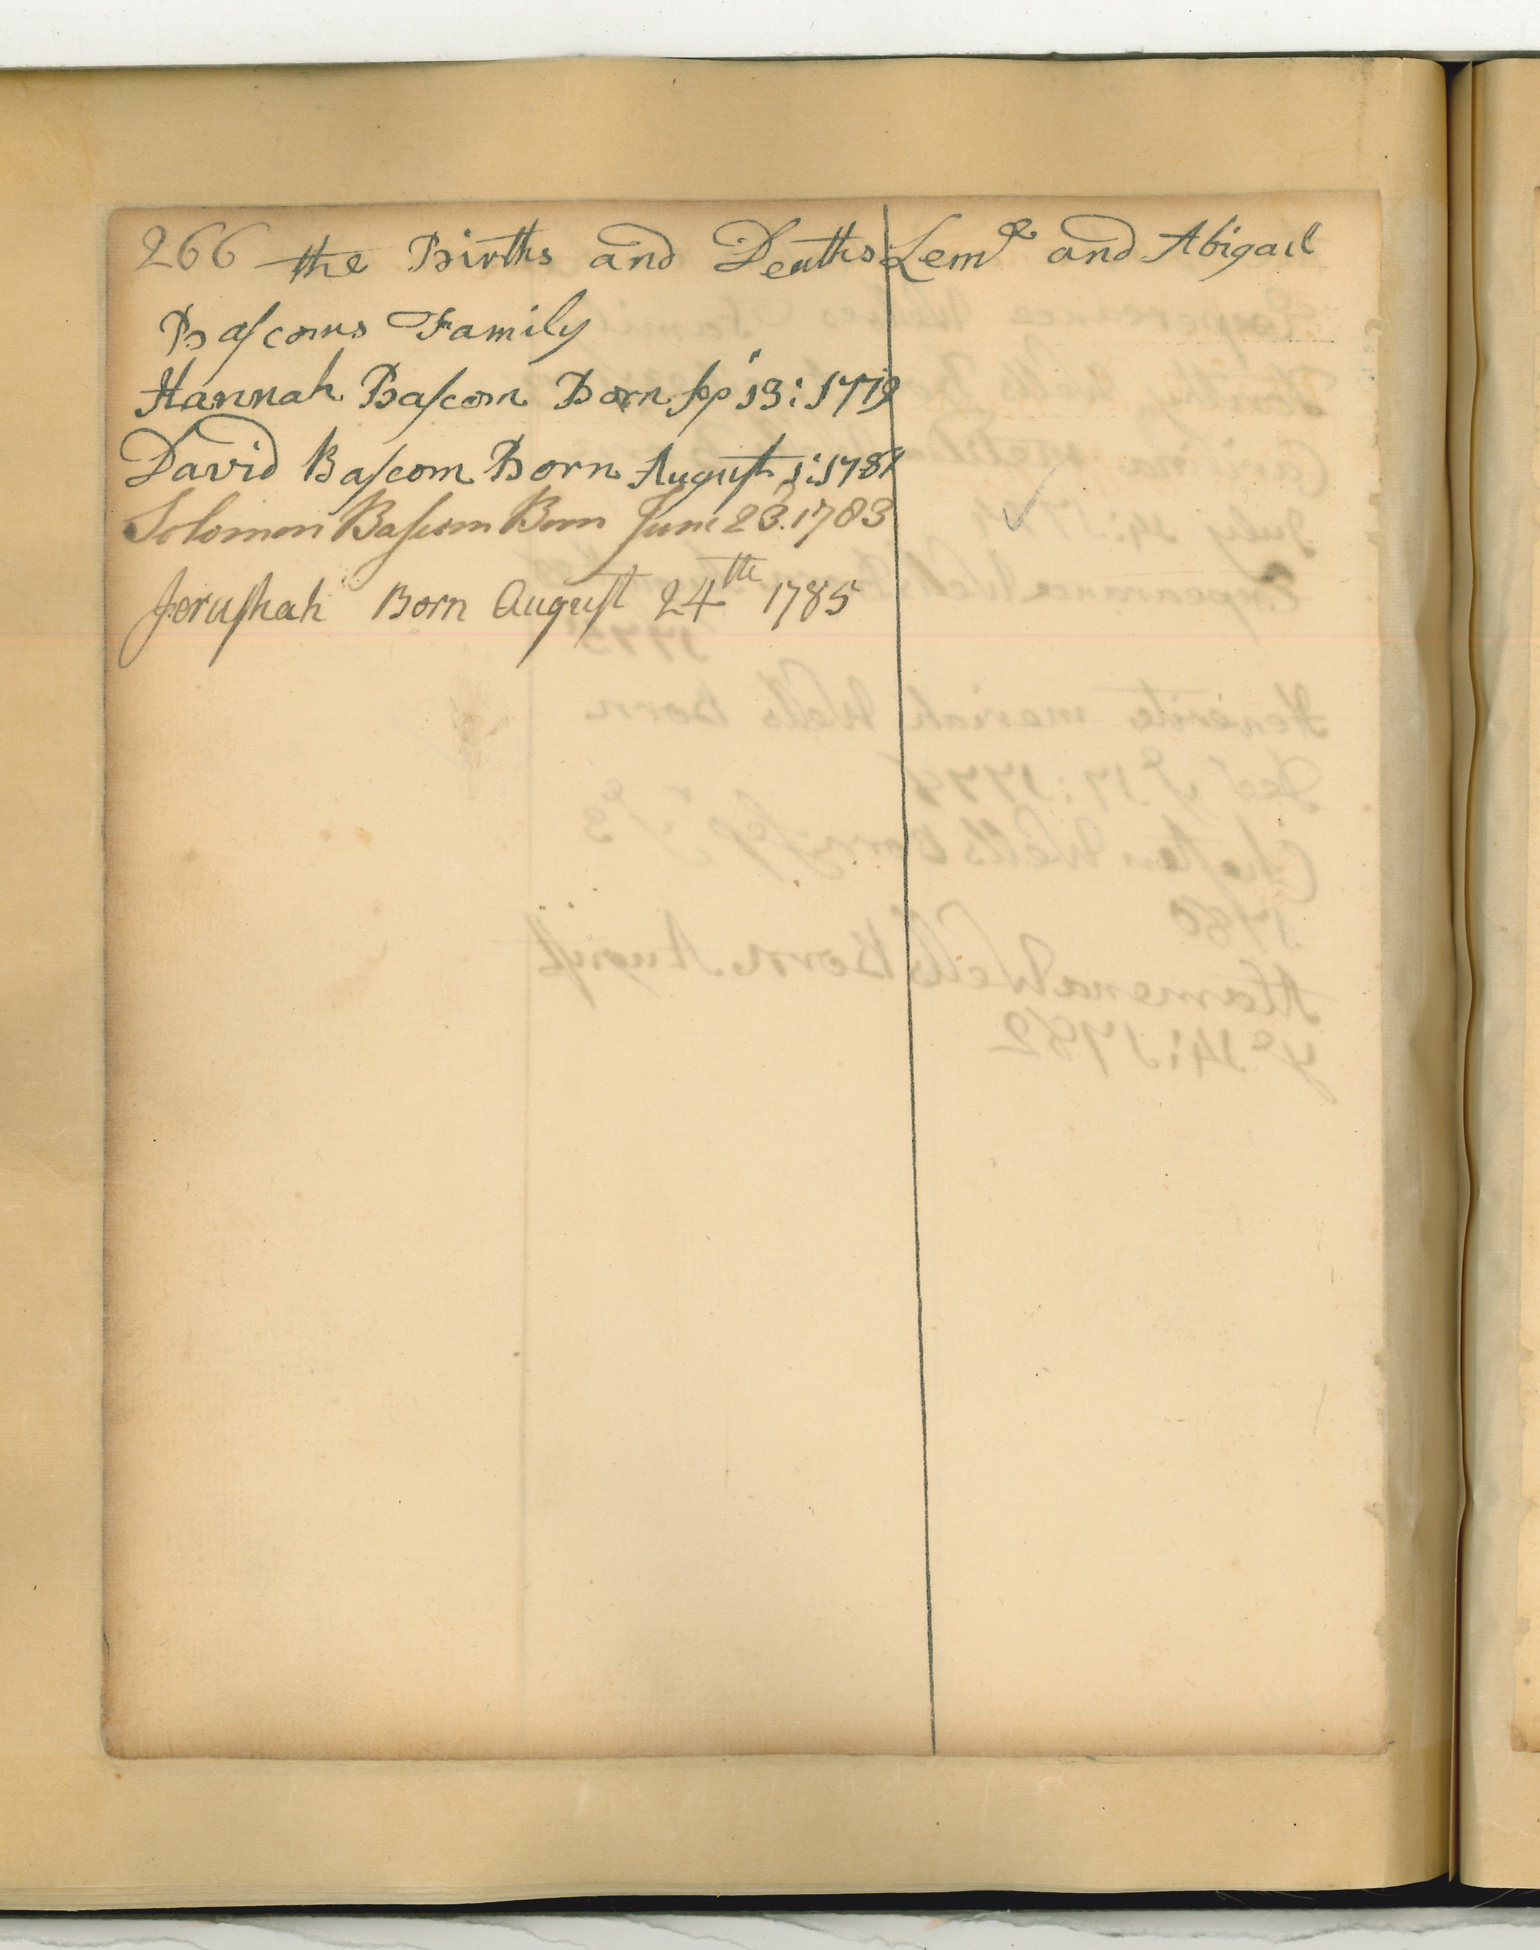 266 the Births and Deaths Lem^l and Abigail
Baſcoms Family
Hannah Baſcom Born ſep^r 13: 1779
David Baſcom Born Auguſt 1: 1781
Solomon Baſcom Born June 23. 1783
Jeruſhah Born Auguſt 24th 1785